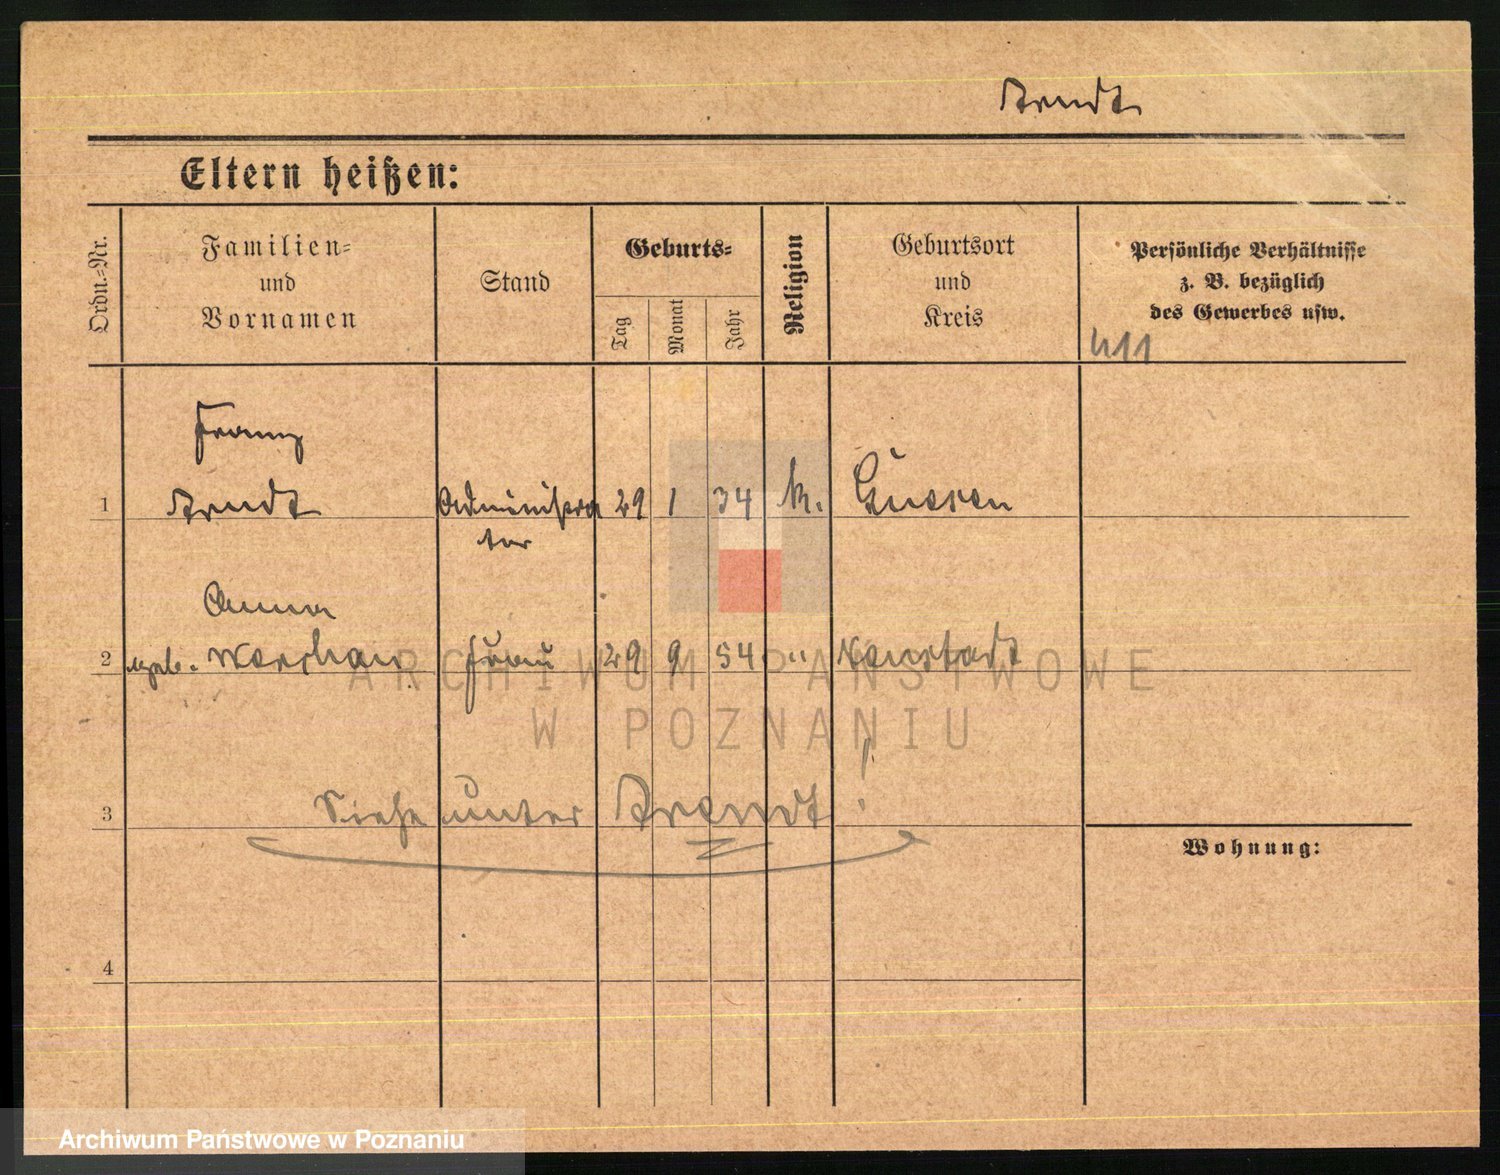 Arndt
Eltern heißen:
Ordn.-Nr.
Familien-
und
Vornamen
Stand
Geburts-
Tag
Monat
Jahr
Religion
Geburtsort
und
Kreis
Persönliche Verhältnisse
z. B. bezüglich
des Gewerbes usw.
411
Franz
1 Arndt Administra 29 1 34 k. Gnesen
tor
Anna
2 geb. Frau 29 9 54 " Neustadt
ARCHIWUM PAŃSTWOWE
W POZNANIU
3 Siehe unter Arendt!
Wohnung:
4
Archiwum Państwowe w Poznaniu